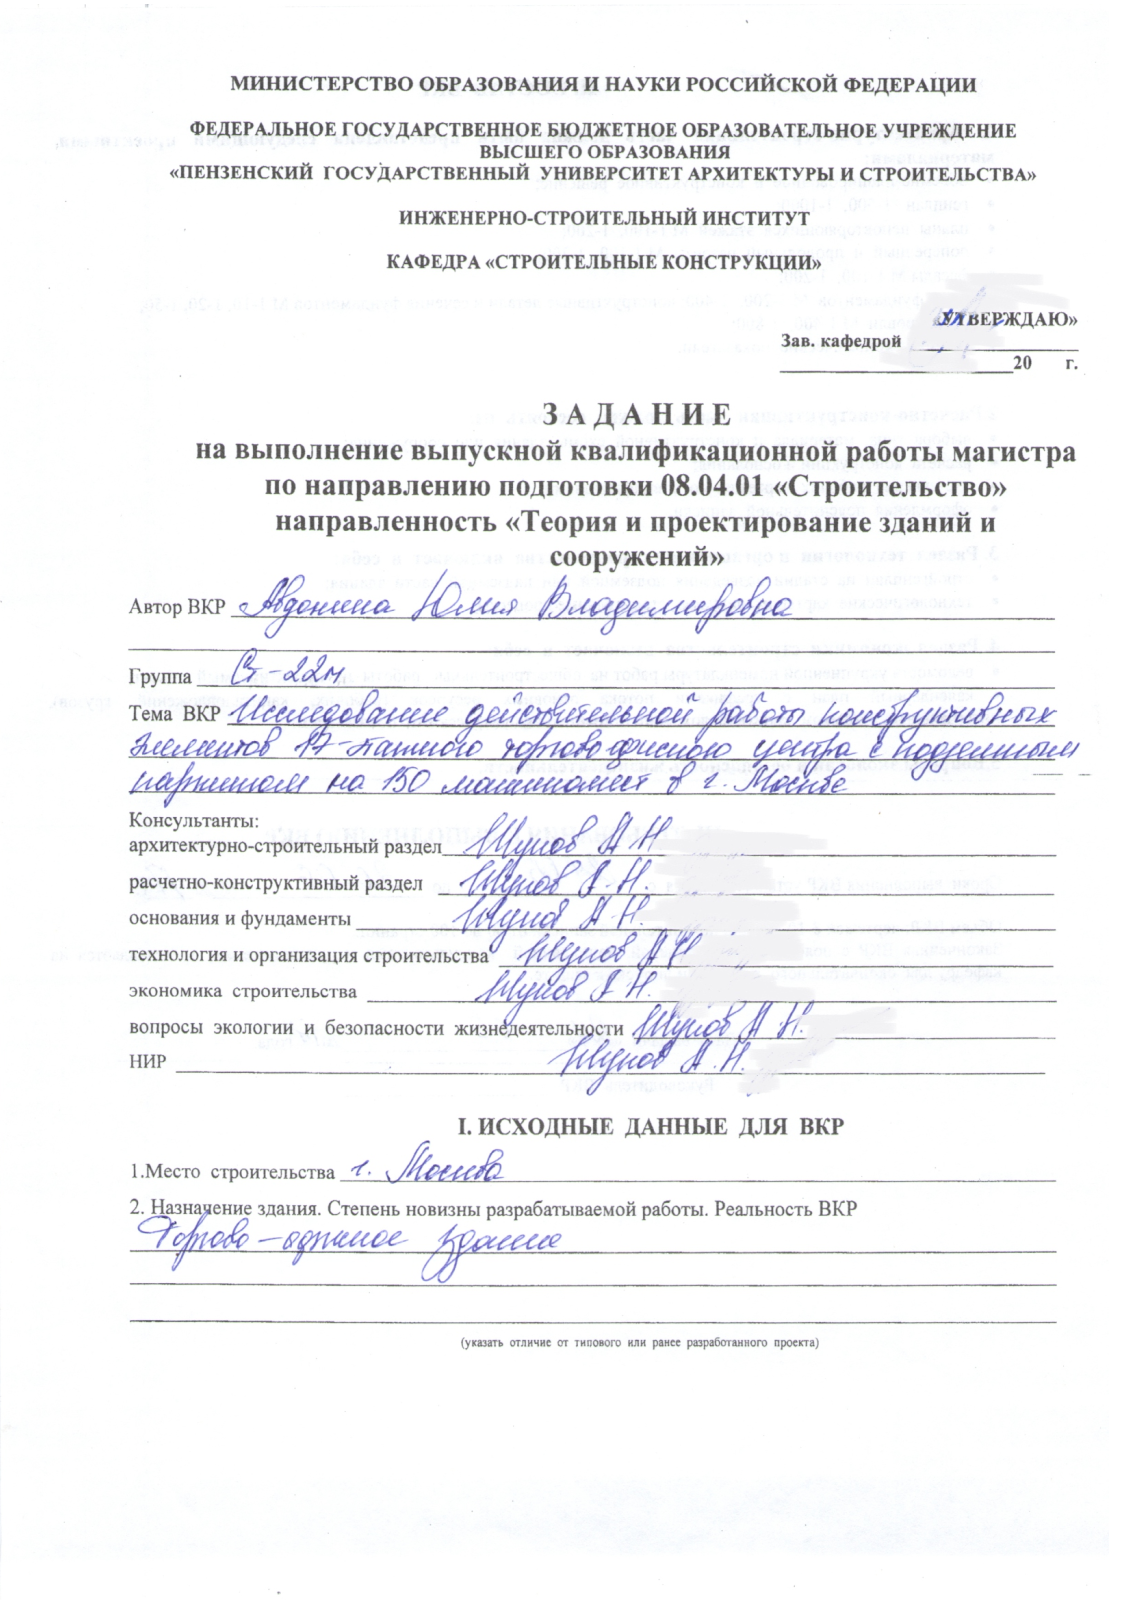 МИНИСТЕРСТВО ОБРАЗОВАНИЯ И НАУКИ РОССИЙСКОЙ ФЕДЕРАЦИИ
ФЕДЕРАЛЬНОЕ ГОСУДАРСТВЕННОЕ БЮДЖЕТНОЕ ОБРАЗОВАТЕЛЬНОЕ УЧРЕЖДЕНИЕ
ВЫСШЕГО ОБРАЗОВАНИЯ
«ПЕНЗЕНСКИЙ ГОСУДАРСТВЕННЫЙ УНИВЕРСИТЕТ АРХИТЕКТУРЫ И СТРОИТЕЛЬСТВА»
ИНЖЕНЕРНО-СТРОИТЕЛЬНЫЙ ИНСТИТУТ
КАФЕДРА «СТРОИТЕЛЬНЫЕ КОНСТРУКЦИИ»
«УТВЕРЖДАЮ»
Зав. кафедрой
20 г.
З А Д А Н И Е
на выполнение выпускной квалификационной работы магистра
по направлению подготовки 08.04.01 «Строительство»
направленность «Теория и проектирование зданий и
сооружений»
Автор ВКР Авдонина Юлия Владимировна
Группа Ст-22м
Тема ВКР Исследование действительной работы конструктивных
элементов 17-этажного торгово офисного центра с подземным
паркингом на 150 машиномест в г. Москве
Консультанты:
архитектурно-строительный раздел Шупов А Н
расчетно-конструктивный раздел Шупов А. Н.
основания и фундаменты Шупов А. Н.
технология и организация строительства Шупов А Н
экономика строительства Шупов А Н.
вопросы экологии и безопасности жизнедеятельности Шупов А Н.
НИР Шупов А. Н.
I. ИСХОДНЫЕ ДАННЫЕ ДЛЯ ВКР
1.Место строительства г. Москва
2. Назначение здания. Степень новизны разрабатываемой работы. Реальность ВКР
Торгово-офисное здание
(указать отличие от типового или ранее разработанного проекта)